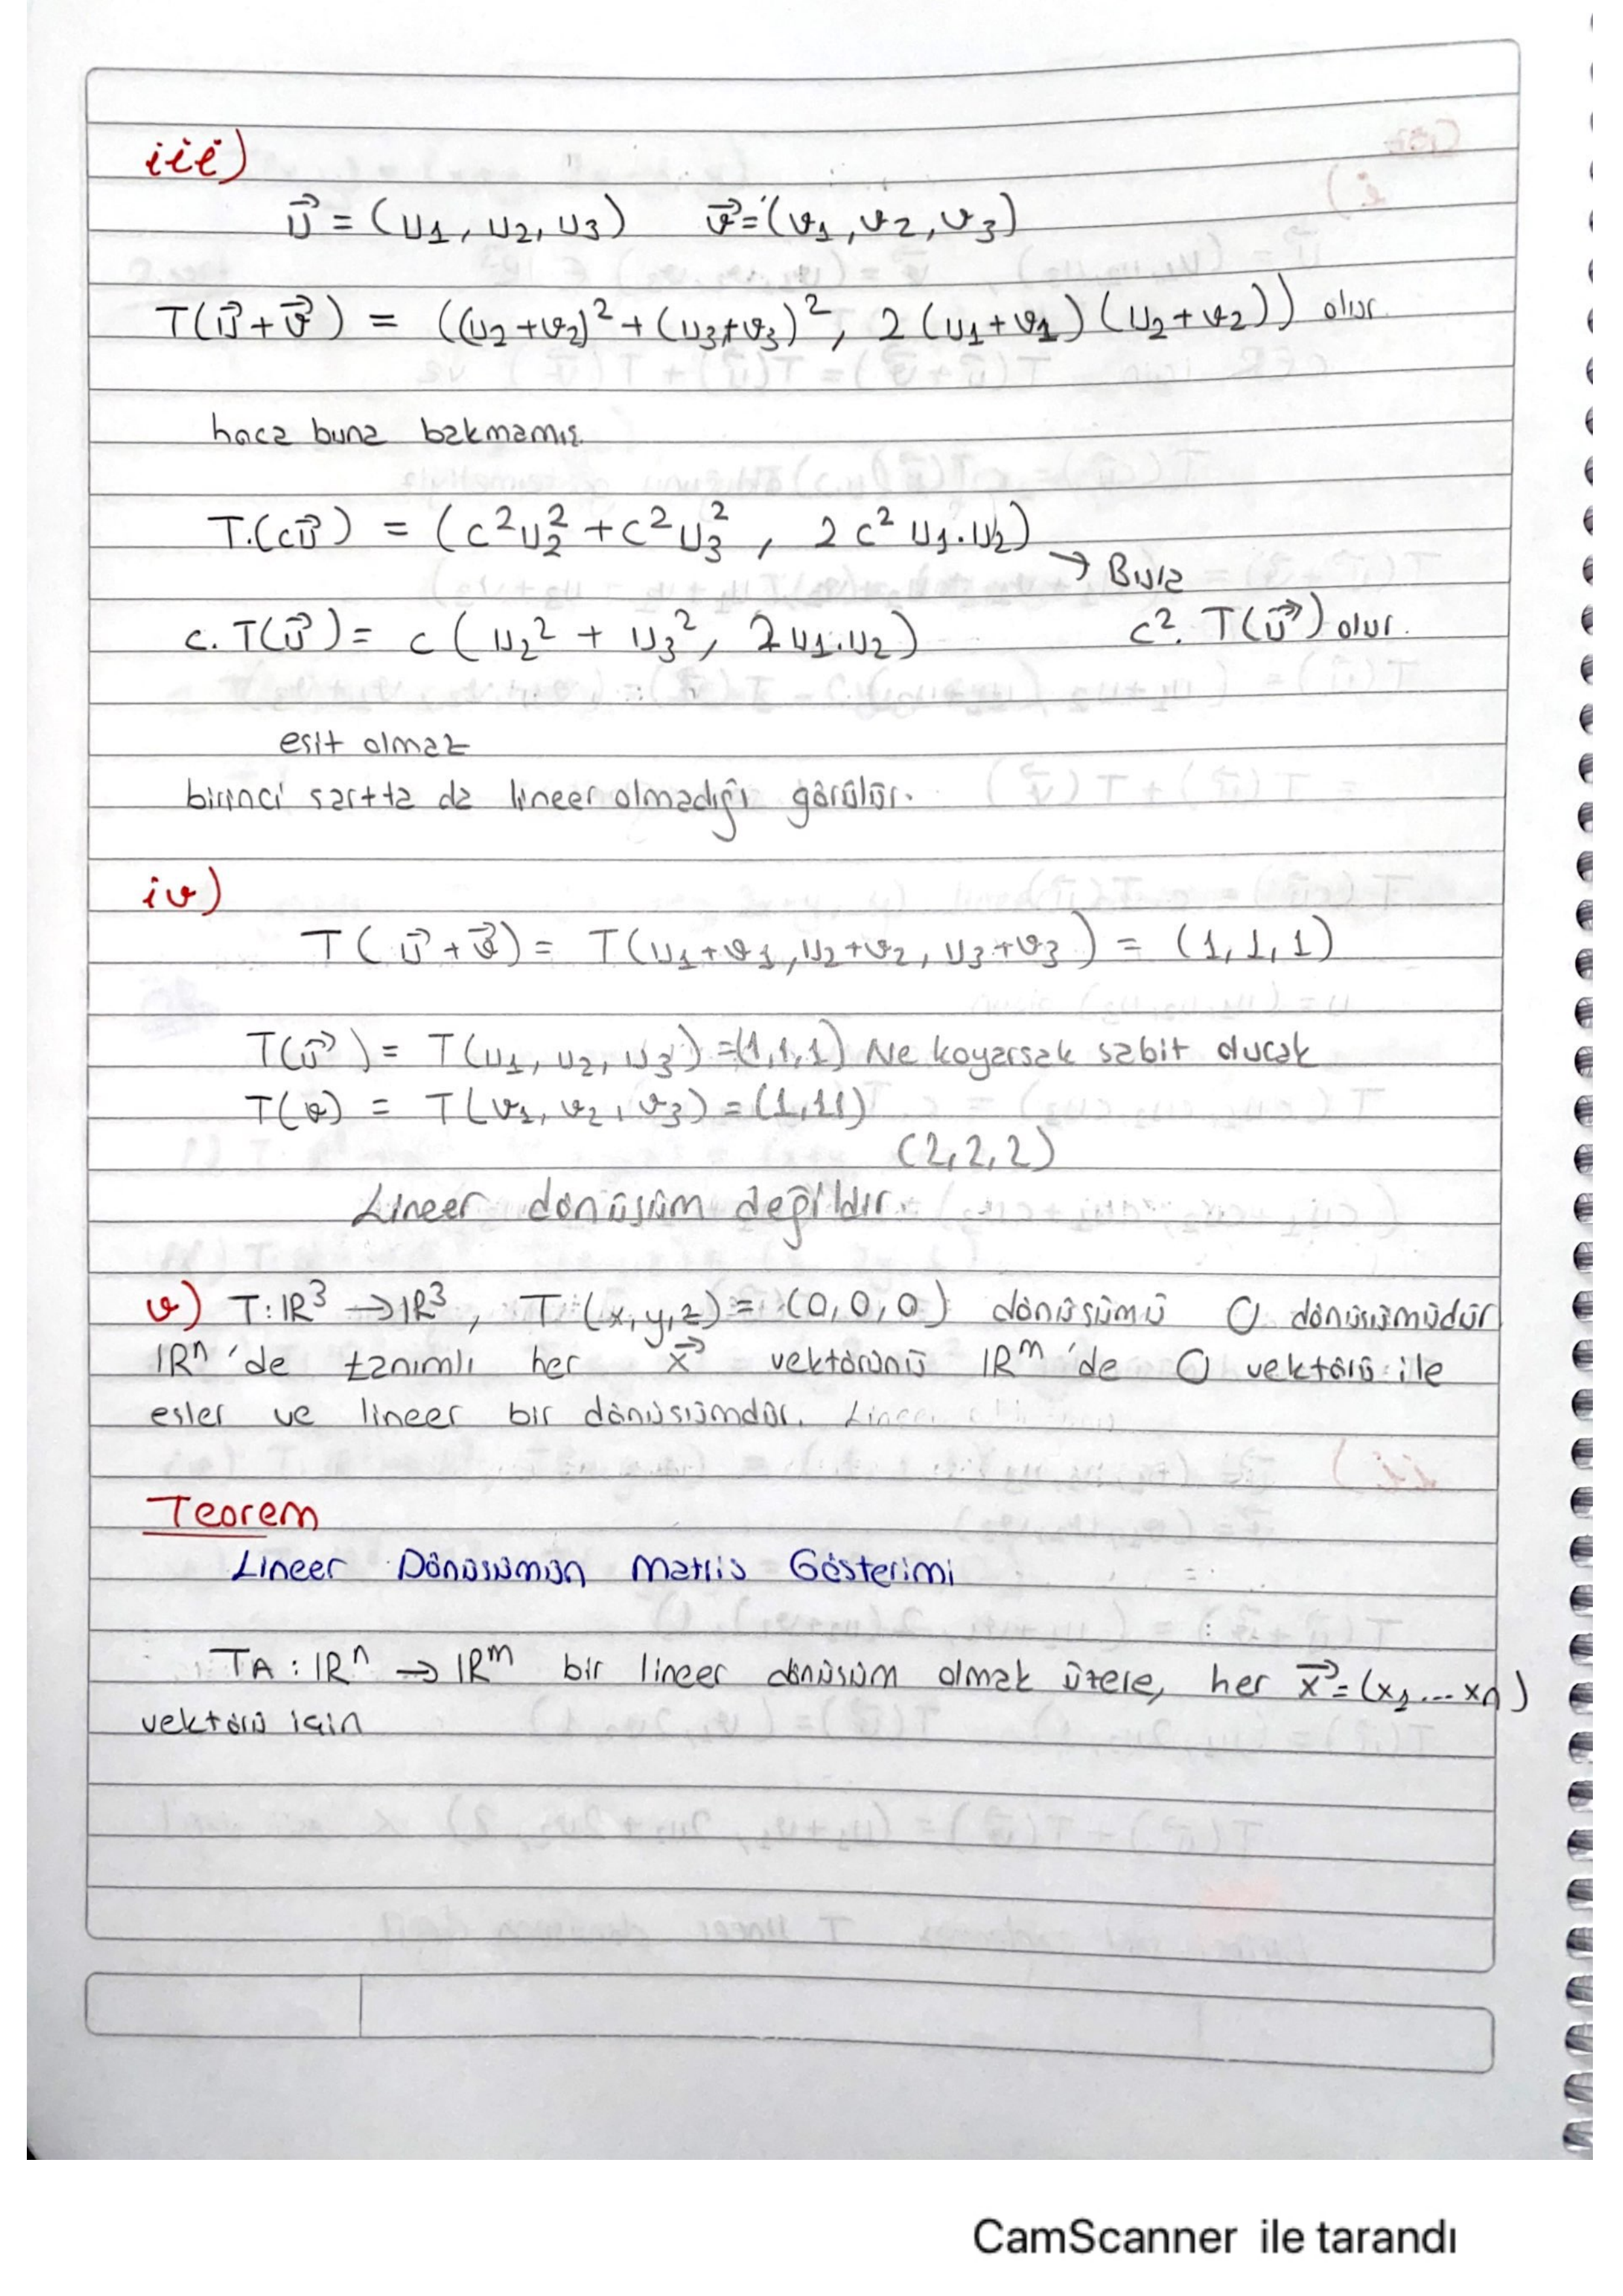 iii)
u⃗ = (u1, u2, u3) v⃗ = (v1, v2, v3)
T(u⃗+v⃗) = ((u2+v2)² + (u3+v3)², 2(u1+v1)(u2+v2)) olur.
hoca buna bakmamış.
T.(cu⃗) = (c²u2² + c²u3², 2c² u1.u2)
→ Bura
c. T(u⃗) = c (u2² + u3², 2u1.u2) c². T(u⃗) olur.
esit olmaz
birinci sartta da lineer olmadığı görülür.
iv)
T(u⃗+v⃗) = T(u1+v1, u2+v2, u3+v3) = (1,1,1)
T(u⃗) = T(u1, u2, u3) = (1,1,1) Ne koyarsak sabit olucak
T(v) = T(v1, v2, v3) = (1,11)
(2,2,2)
Lineer dönüsüm değildir.
v) T: IR³ → IR³, T(x,y,z) = (0,0,0) dönüsümü O dönüsümüdür
IRⁿ 'de tanımlı her x⃗ vektörünü IRᵐ 'de O vektörü ile
esler ve lineer bir dönüsümdür.
Teorem
Lineer Dönüsümün Matris Gösterimi
TA : IRⁿ → IRᵐ bir lineer dönüsüm olmak üzere, her x⃗ = (x1 ... xn)
vektörü için
CamScanner ile tarandı